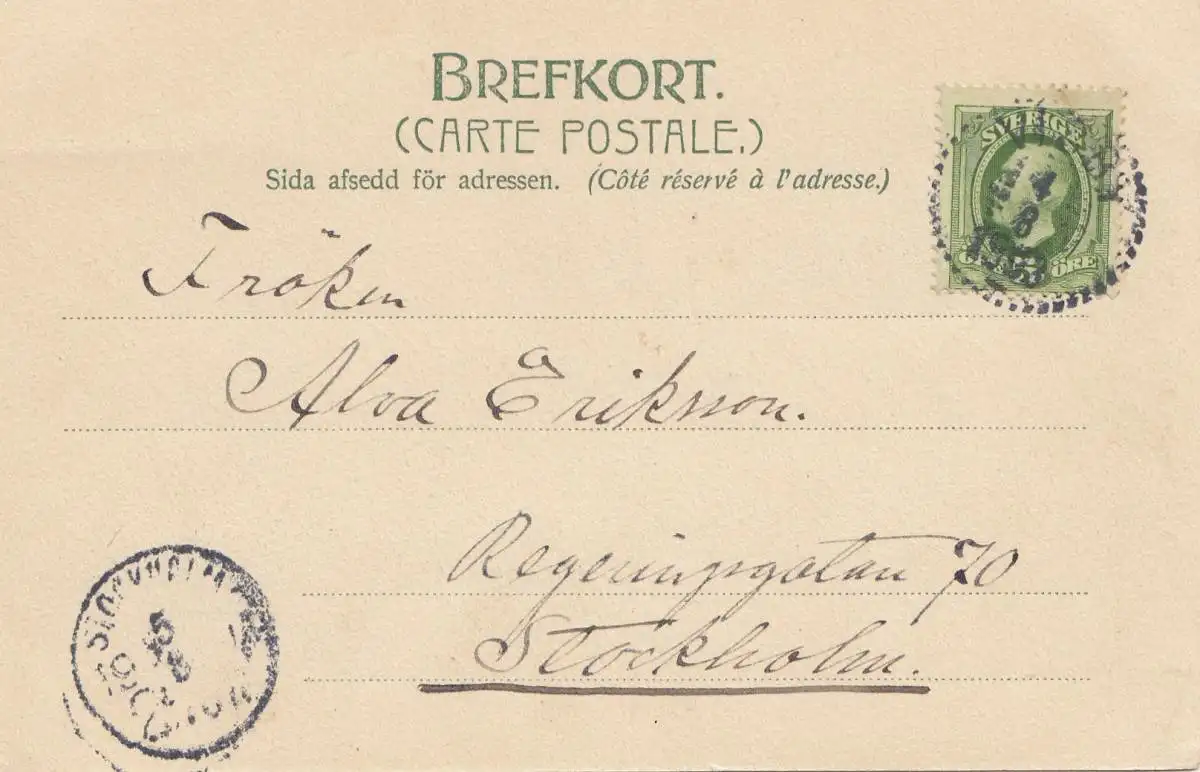 BREFKORT.
(CARTE POSTALE.)
Sida afsedd för adressen. (Côté réservé à l'adresse.)
SVERIGE
ÖRE
4
8
Fröken
Alva Eriksson.
Regeringsgatan 70
Stockholm.
STOCKHOLM
5
8